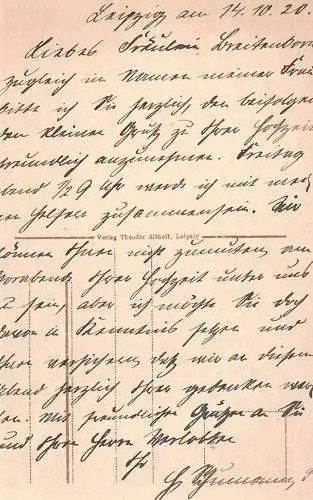 Leipzig am 14.10.20.
Liebes Fräulein Breitenborn
zugleich im Namen meiner Frau
bitte ich Sie herzlich den beifolgen
den kleinen Gruß zu Ihrer Hochzeit
freundlich anzunehmen. Freitag
abend ½9 Uhr werde ich mit mei
nen Helfern zusammensein. Wir
Verlag Theodor Althoff, Leipzig
können Ihnen nicht zumuten am
Vorabend Ihrer Hochzeit unter uns
zu sein, aber ich möchte Sie doch
davon in Kenntnis setzen und
Ihnen versichern, daß wir an diesem
Abend herzlich Ihrer gedenken wer
den. Mit freundlichen Grüßen an Sie
und Ihren Herrn Verlobten
Ihr
Schumann